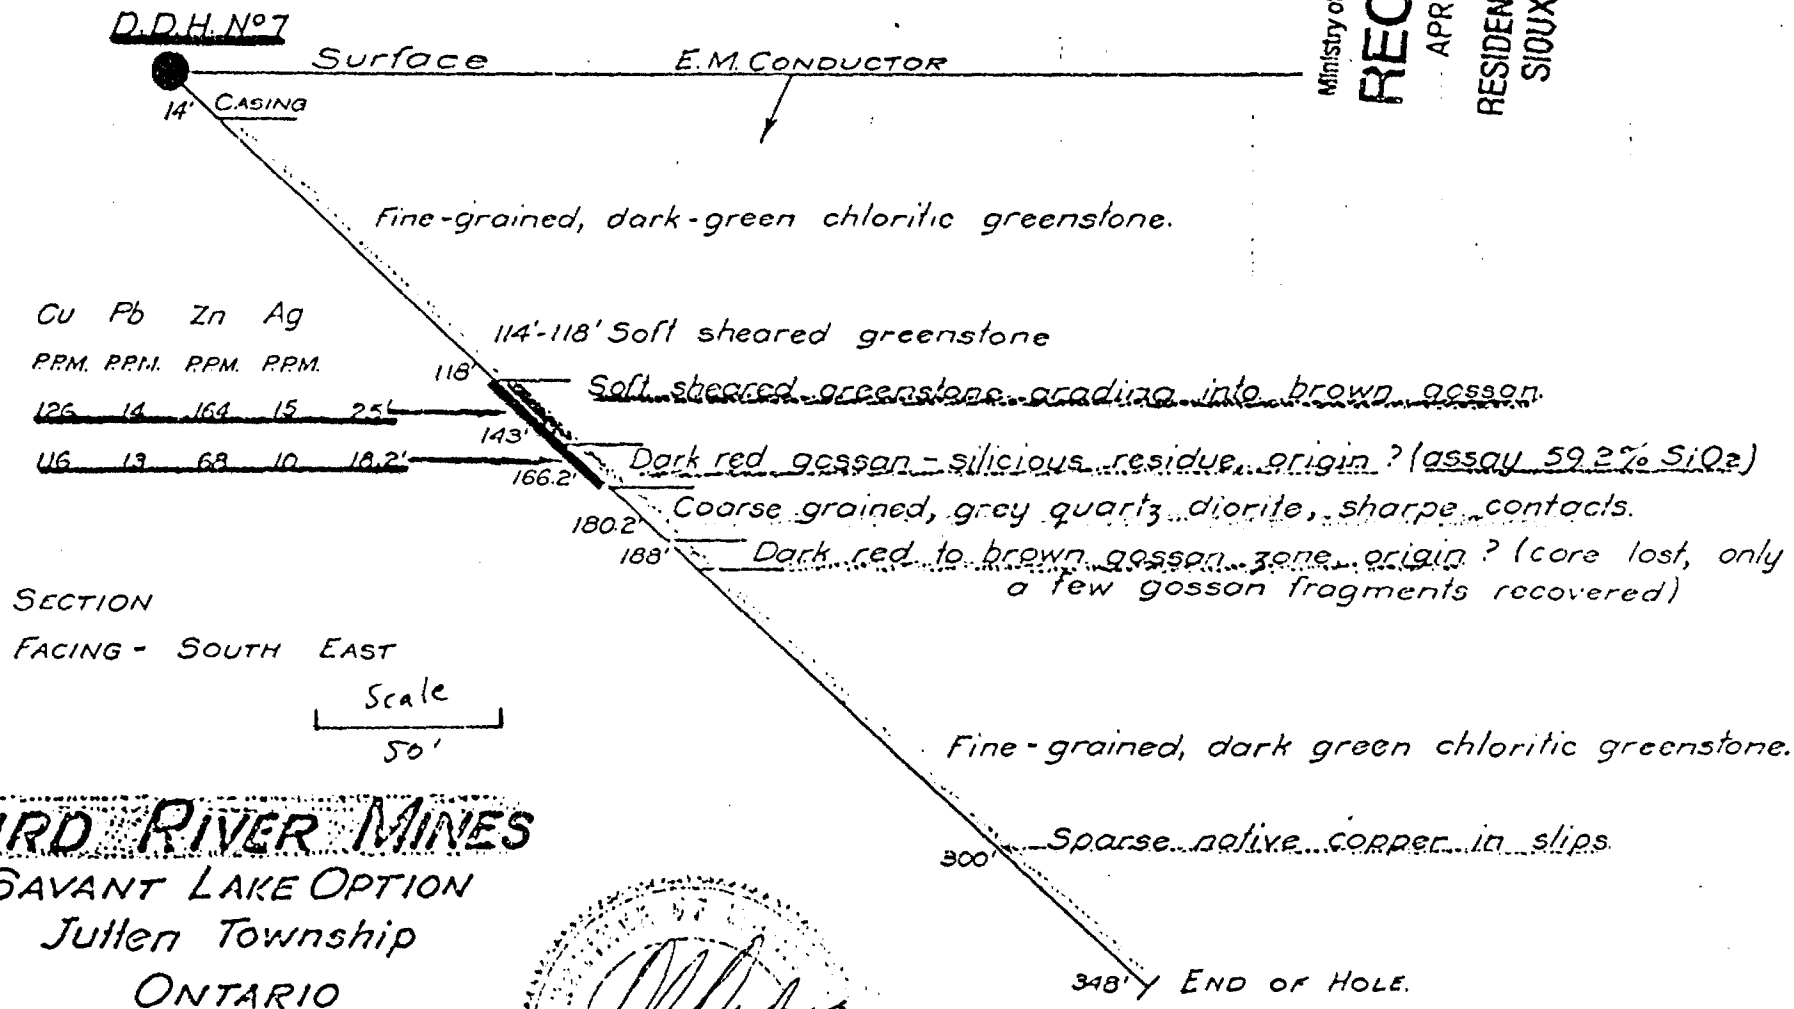 D.D.H. Nº 7
Surface
E.M. CONDUCTOR
Ministry of
REC
APR
RESIDEN
SIOUX
14'
CASING
Fine-grained, dark-green chloritic greenstone.
Cu Pb Zn Ag
P.P.M. P.P.M. P.P.M. P.P.M.
126 14 164 15 25'
116 13 68 10 18.2'
114'-118' Soft sheared greenstone
118'
Soft sheared greenstone grading into brown gossan.
143'
Dark red gossan - silicious residue, origin ? (assay 59.2% SiO2)
166.2'
Coarse grained, grey quartz diorite, sharpe contacts.
180.2'
188'
Dark red to brown gossan zone, origin ? (core lost, only
a few gossan fragments recovered)
SECTION
FACING - SOUTH EAST
Scale
50'
Fine-grained, dark green chloritic greenstone.
300'
Sparse native copper in slips
348'
END OF HOLE.
RD RIVER MINES
SAVANT LAKE OPTION
Jutten Township
ONTARIO